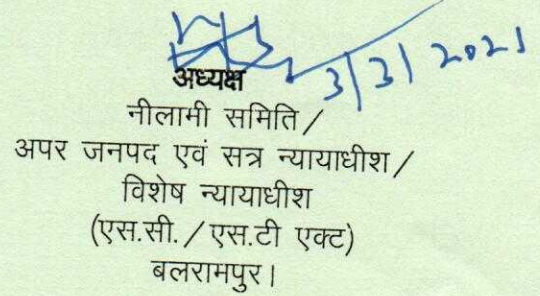 3/3/2021
अध्यक्ष
नीलामी समिति/
अपर जनपद एवं सत्र न्यायाधीश/
विशेष न्यायाधीश
(एस.सी./एस.टी एक्ट)
बलरामपुर।